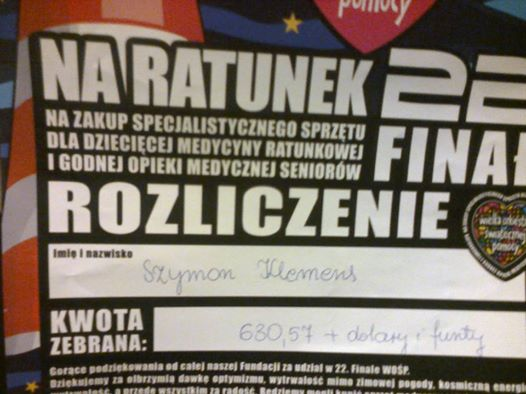 pomocy
NA RATUNEK
22
NA ZAKUP SPECJALISTYCZNEGO SPRZĘTU
DLA DZIECIĘCEJ MEDYCYNY RATUNKOWEJ
I GODNEJ OPIEKI MEDYCZNEJ SENIORÓW
FINAŁ
ROZLICZENIE
wielka orkiestra
świątecznej
pomocy
Imię i nazwisko
Szymon Klemens
KWOTA
ZEBRANA:
630,57 + dolary i funty
Gorące podziękowania od całej naszej Fundacji za udział w 22. Finale WOŚP.
Dziękujemy za olbrzymią dawkę optymizmu, wytrwałość mimo zimowej pogody, kosmiczną